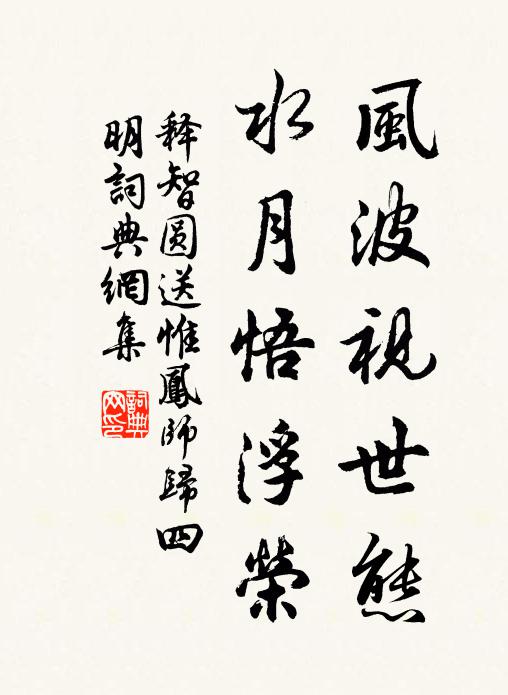 風波視世態
水月悟浮榮
释智圓送惟鳳师歸四
明詞典網集
詞典网印